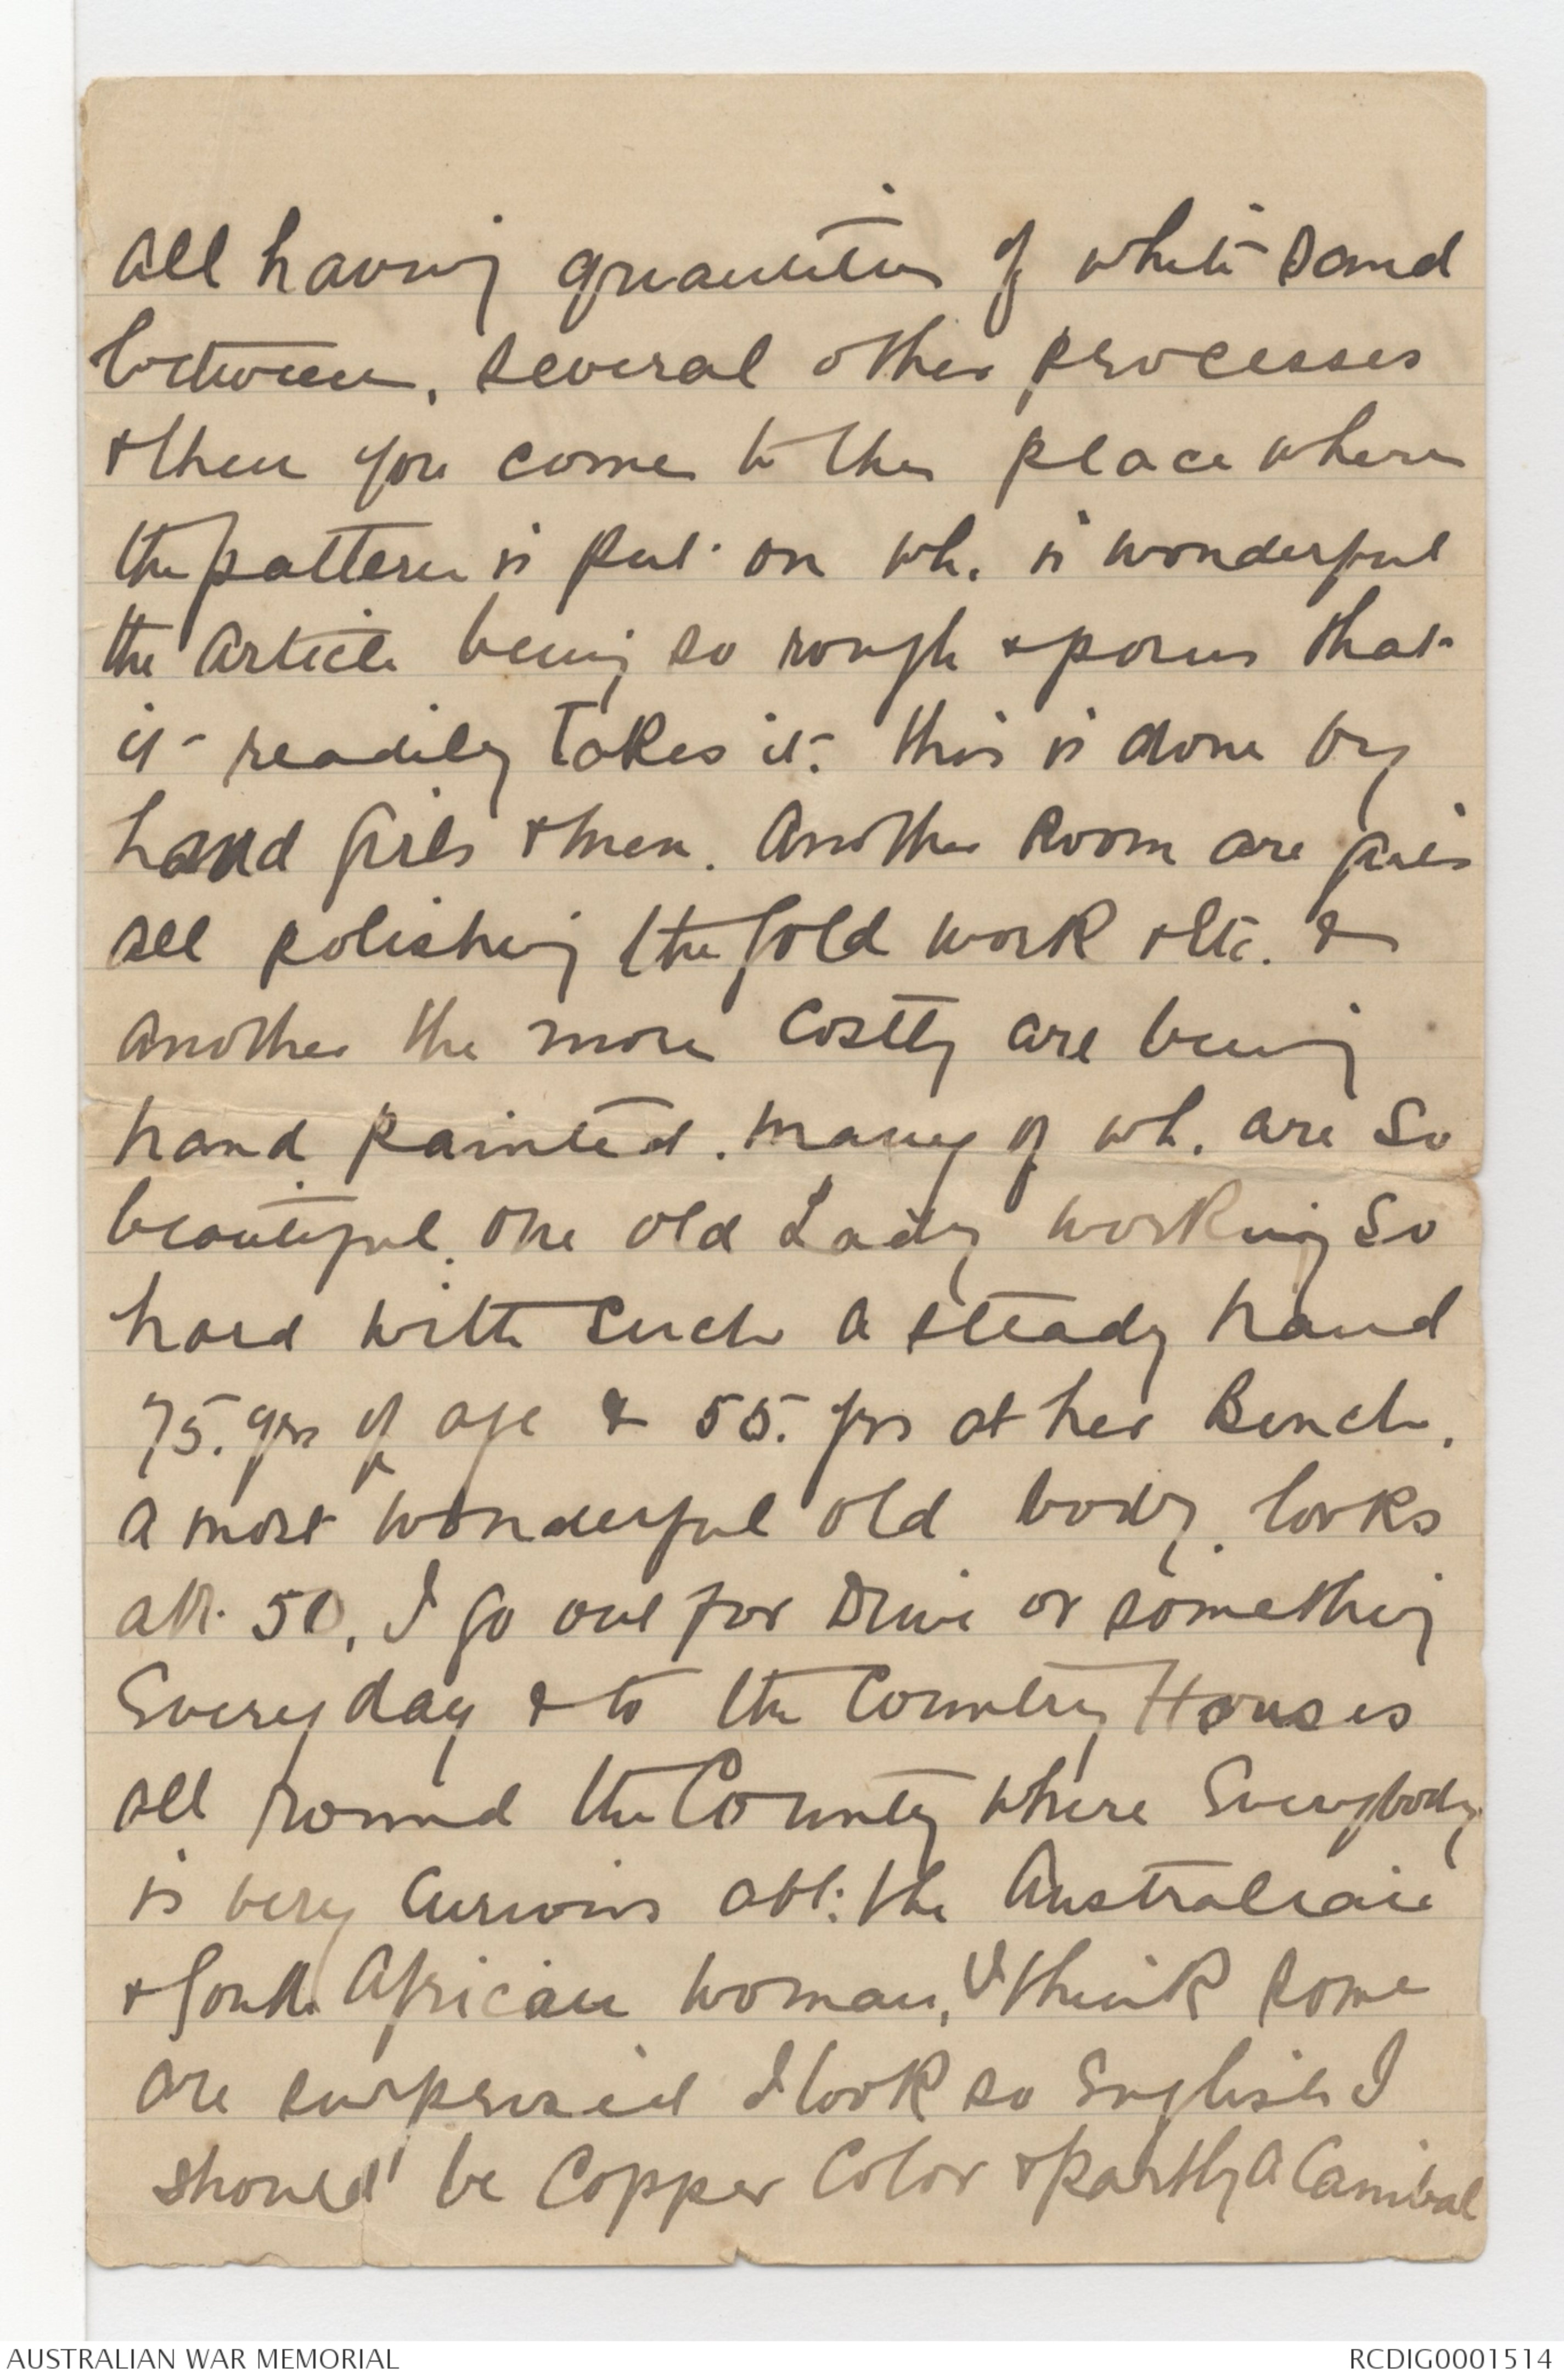 all having quantities of white sand
between, several other processes
& then you come to the place where
the pattern is put on wh. is wonderful
the article being so rough & porus that
it readily takes it. this is done by
hand girls & men. Another Room are girls
all polishing the gold work & etc. &
another the more costly are being
hand painted. many of wh. are so
beautiful. one old Lady working so
hard with such a steady hand
75. yrs of age & 55. yrs at her Bench.
a most wonderful old body. looks
abt. 50, I go out for Drive or something
Every day & to the Country Houses
all round the County where Everybody
is very curious abt: the Australian
& South African woman, I think some
are surprised I look so English I
should be Copper Color & partly a Canibal
AUSTRALIAN WAR MEMORIAL
RCDIG0001514